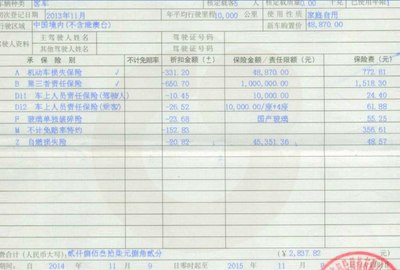 车辆种类 客车 核定载客5 人 核定载质量0.00 已使用年限1
初次登记日期 2013年11月 年平均行驶里程0,000 公里 使用性质 家庭自用
行驶区域 中国境内(不含港澳台) 新车购置价 48,870.00
驾驶人资料 主驾驶人姓名 驾驶证号码
其他驾驶人姓名 驾驶证号码
承保险别 不计免赔率 折扣金额(±) 保险金额/责任限额(元) 保险费(元)
A 机动车损失保险 √ -331.20 48,870.00 772.81
B 第三者责任保险 √ -650.70 1,000,000.00 1,518.30
D11 车上人员责任保险(驾驶人) -10.45 10,000.00 24.40
D12 车上人员责任保险(乘客) -26.52 10,000.00/座*4座 61.88
F 玻璃单独破碎险 -23.68 国产玻璃 55.25
M 不计免赔率特约 -152.83 356.61
Z 自燃损失险 -20.82 45,351.36 48.57
保险费合计(人民币大写): 贰仟捌佰叁拾柒元捌角贰分 (¥: 2,837.82 元)
2014 年 11 月 9 日零时起至 2015 年 11 月 8